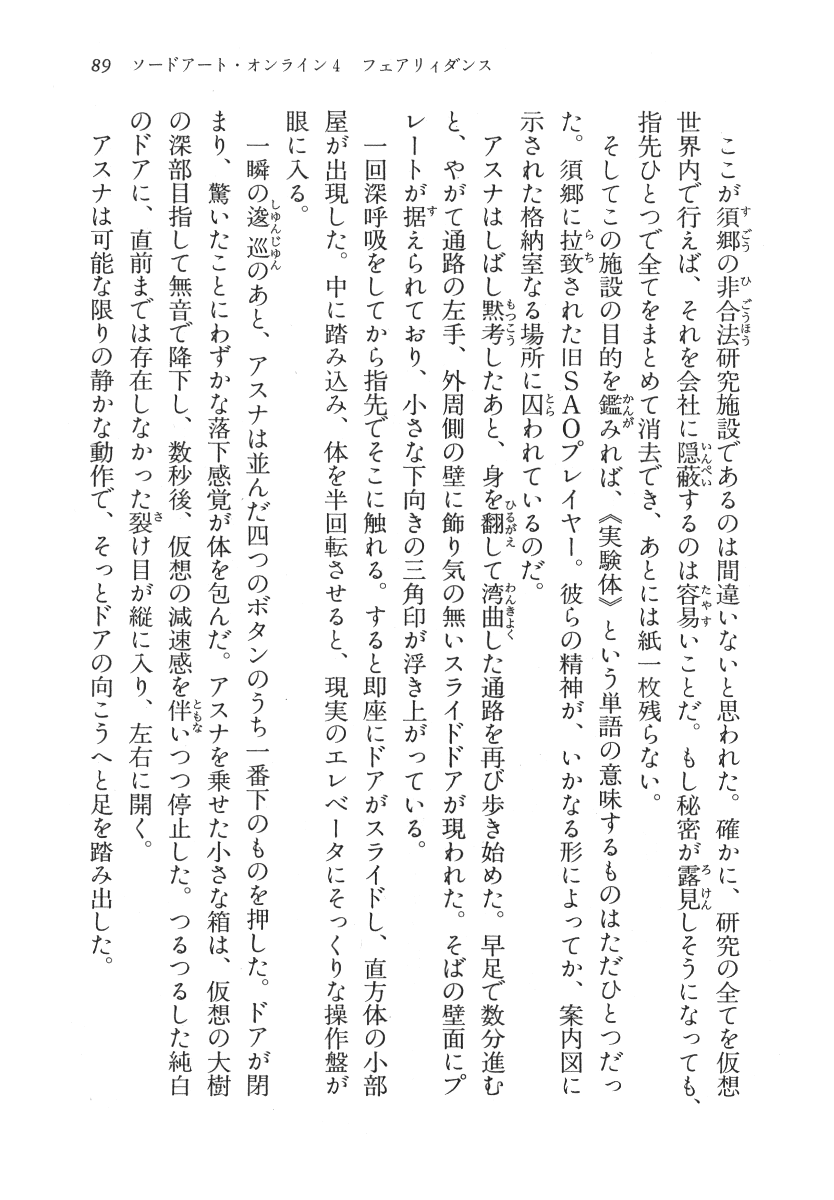 89　ソードアート・オンライン4　フェアリィダンス
　ここが須郷の非合法研究施設であるのは間違いないと思われた。確かに、研究の全てを仮想
世界内で行えば、それを会社に隠蔽するのは容易いことだ。もし秘密が露見しそうになっても、
指先ひとつで全てをまとめて消去でき、あとには紙一枚残らない。
　そしてこの施設の目的を鑑みれば、《実験体》という単語の意味するものはただひとつだっ
た。須郷に拉致された旧ＳＡＯプレイヤー。彼らの精神が、いかなる形によってか、案内図に
示された格納室なる場所に囚われているのだ。
　アスナはしばし黙考したあと、身を翻して湾曲した通路を再び歩き始めた。早足で数分進む
と、やがて通路の左手、外周側の壁に飾り気の無いスライドドアが現われた。そばの壁面にプ
レートが据えられており、小さな下向きの三角印が浮き上がっている。
　一回深呼吸をしてから指先でそこに触れる。すると即座にドアがスライドし、直方体の小部
屋が出現した。中に踏み込み、体を半回転させると、現実のエレベータにそっくりな操作盤が
眼に入る。
　一瞬の逡巡のあと、アスナは並んだ四つのボタンのうち一番下のものを押した。ドアが閉
まり、驚いたことにわずかな落下感覚が体を包んだ。アスナを乗せた小さな箱は、仮想の大樹
の深部目指して無音で降下し、数秒後、仮想の減速感を伴いつつ停止した。つるつるした純白
のドアに、直前までは存在しなかった裂け目が縦に入り、左右に開く。
　アスナは可能な限りの静かな動作で、そっとドアの向こうへと足を踏み出した。